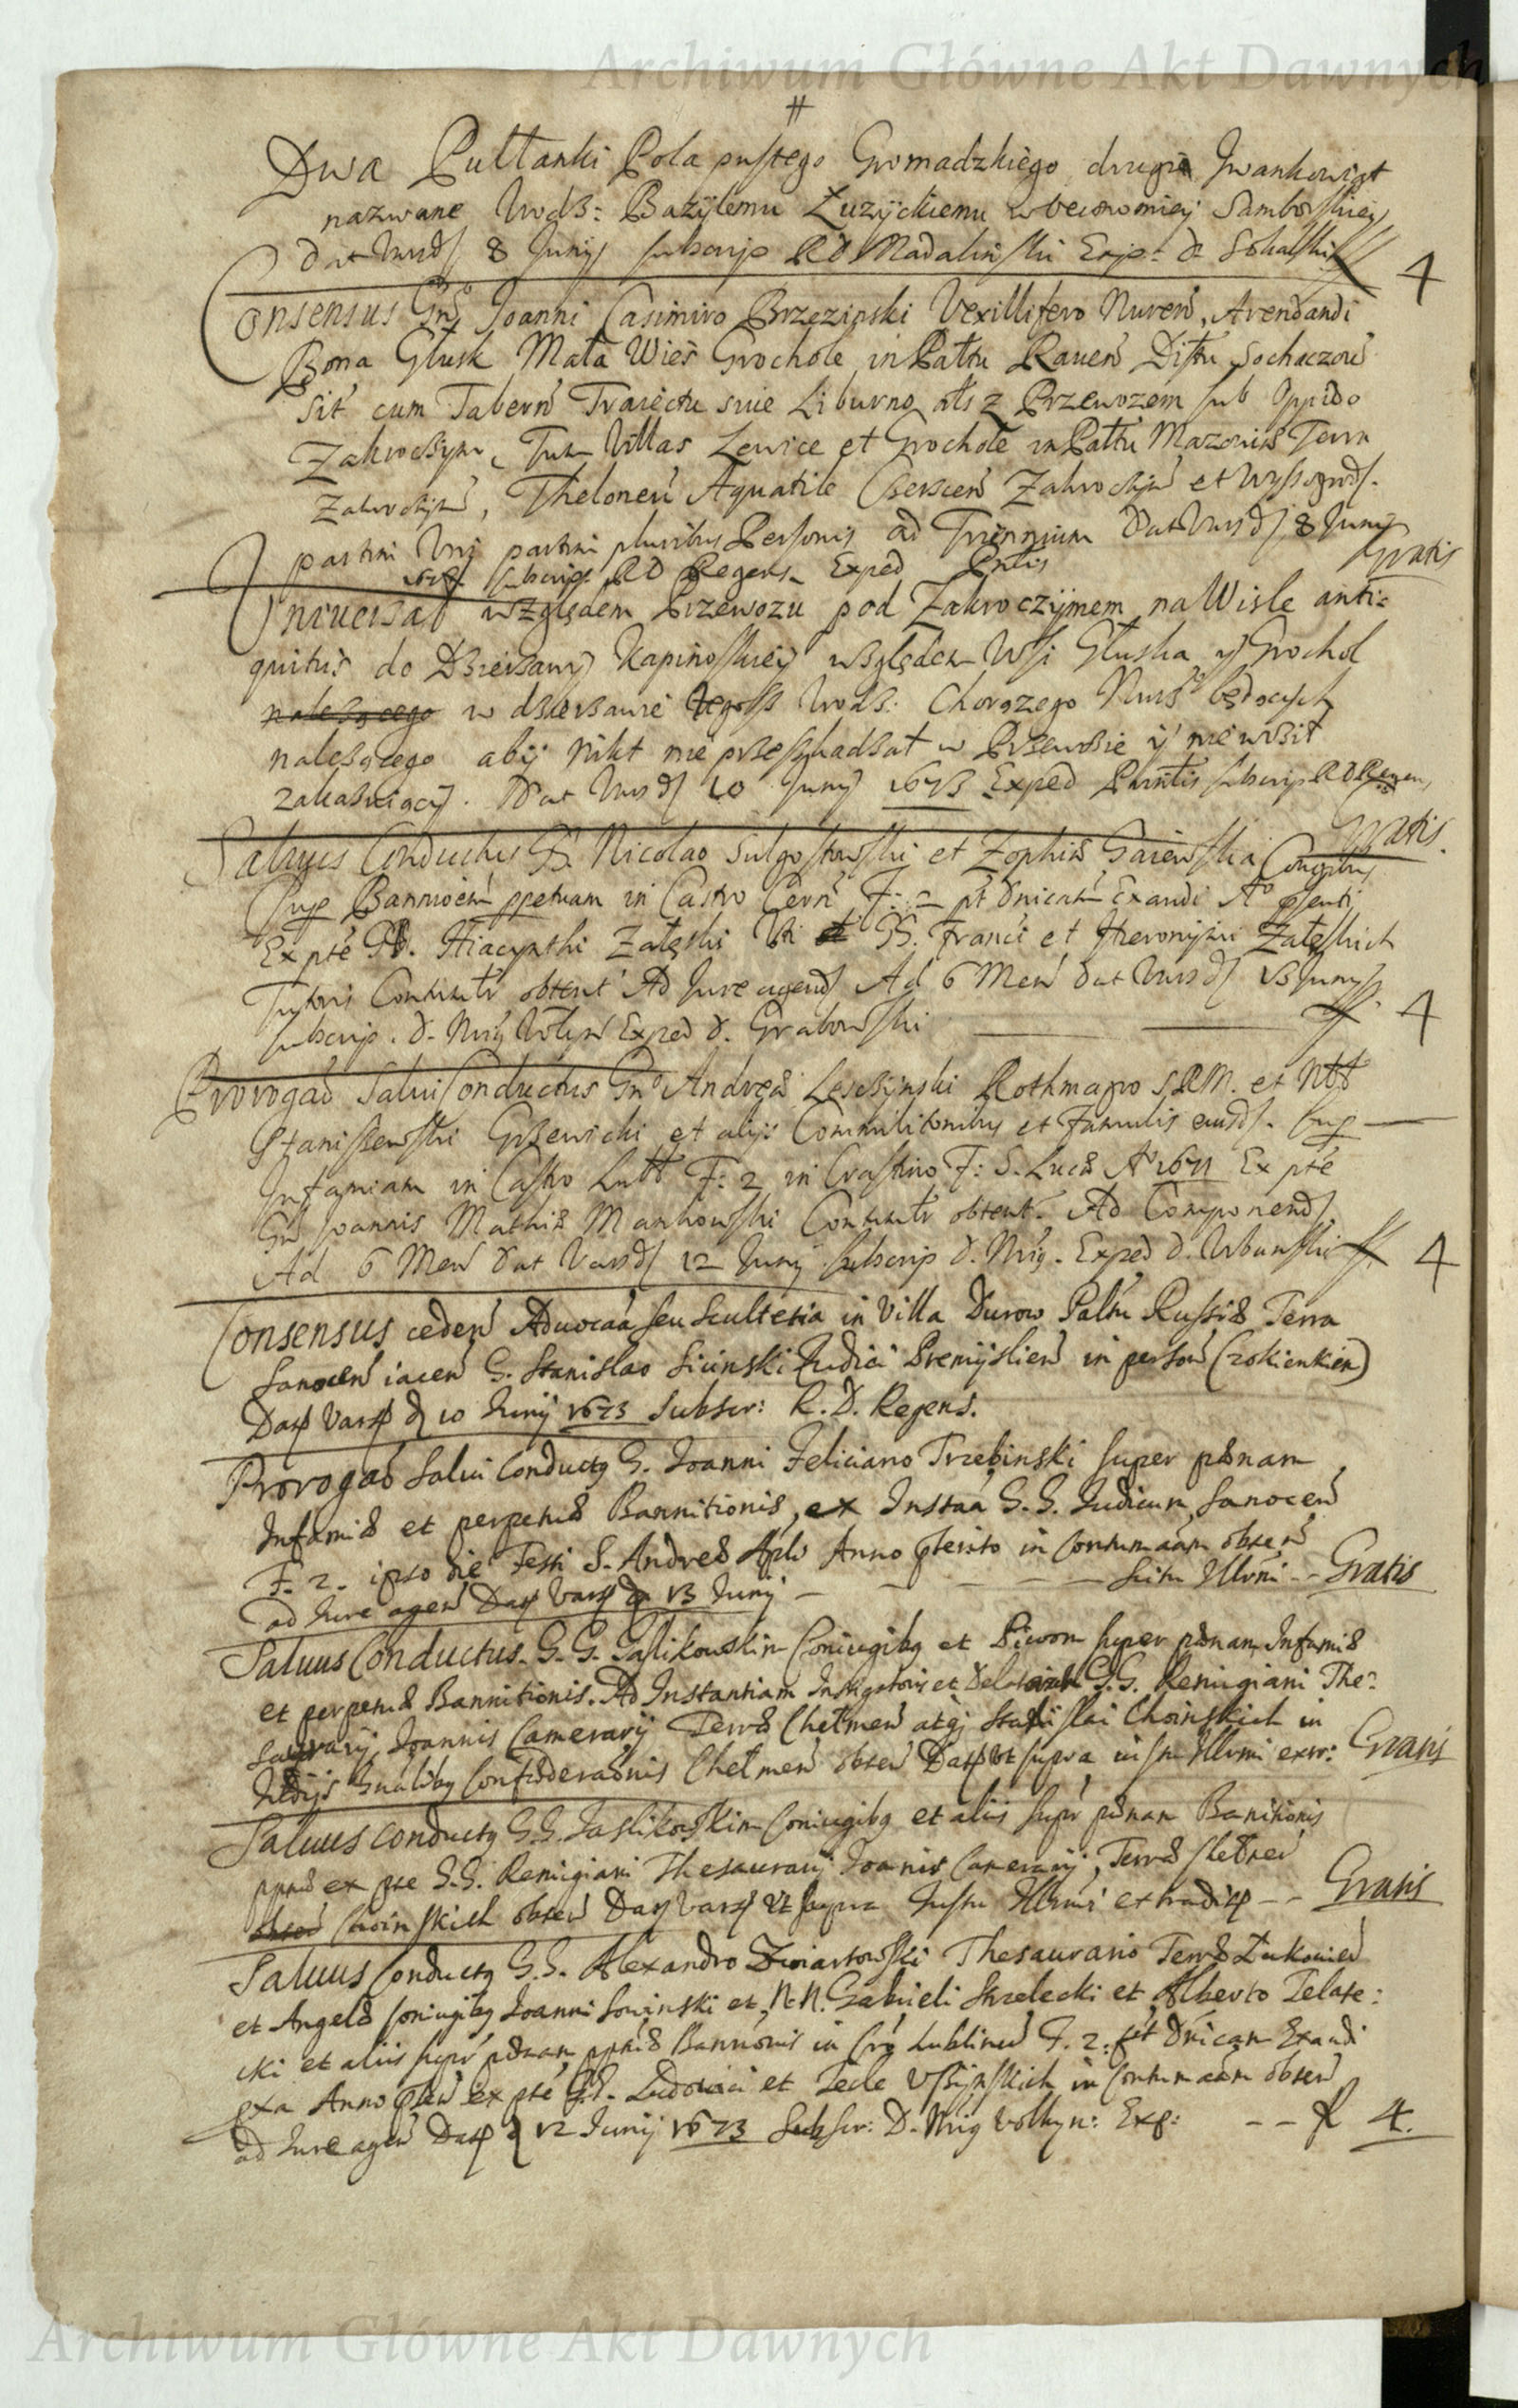 Archiwum Główne Akt Dawnych
Dwa Pułłanki Pola pustego Gromadzkiego drugie Iwankowiat
nazwane Urodz: Bazylemu Łuzyckiemu w oeconomiey Samborskiey
Dat Vars 8 Junij subscrip RD Madalinski Exp: d. Sokalski 4
Consensus Gnō Joanni Casimiro Brzezinski Vexillifero Nureń, Arendandi
Bona Głusk Mała Wieś Grochole in Pałtu Raveń Distru Sochaczoviē
sit cum Tabern Traiectu sive Liburno als z Przewozem sub Oppido
Zakroczym, Tum Villas Lewice et Grochole in Pałtu Mazoviæ Terra
Zakroczym, Theloneū Aquatile Czerscen Zakroczym et Wyssogrod.
partim Uni partim pluribus Personis ad Triennium Dat Vars 8 Junij
1673 subscrip RD Regens Exped Pntis Gratis
Uniuersał względem Przewozu pod Zakroczymem na Wisle anti=
quitus do Dzierzawy Kapinoskiey względem Wsi Głuska y Grochol
w dzierzawie Urodz. Chorązego Nurs będących
nalezącego aby nikt nie przeszkadzał w Przewozie y nie woził
zakazuiący. Dat Vars 10 Junij 1673 Exped Pntis subscrip RD Regens
Gratis.
Salvus Conductus GG. Nicolao Sulgostowski et Zophiæ Gaiewska Coniugibus
sup Bannioēm ppetuam in Castro Cerń F: 2 pt Dnicam Exaudi Aº psenti
Ex pte Hiacynthi Załęski Uti GG. Franci et Hieronymi Załęskich
Tutoris Contumtr obtent Ad Jure agend Ad 6 Men Dat Vars 13 Junij
subscrip. d. Nrig Wołyn Exped d. Grabowski 4
Prorogaō Salvi Conductus Gnō Andreæ Leszczynski Rothmagro S.R.M. et Nbt
Staniszewski Grzewicki et alijs Commilitonibus et Famulis eiusd. sup
Infamiam in Castro Lubł F: 2 in Crastino F: S. Lucæ Aº 1671 Ex pte
Gnī Joannis Mathiæ Mankowski Contumtr obtent. Ad Componend
Ad 6 Men Dat Vars 12 Junij subscrip d. Nrig. Exped d. Urbanski 4
Consensus cedeń Aduocaā seu Scultetia in Villa Durow Pałtu Russiæ Terra
Sanocen iacen G. Stanislao Siecinski Judici Premyslień in person (rokienkien)
Dat Vars d 10 Junij 1673 Subscr: R. D. Regens.
Prorogaō Salvi Conductq G. Joanni Feliciano Trzebinski super pœnam
Infamiæ et perpetuæ Bannitionis, ex Instaā G. G. Judicum Sanoceń
F. 2. ipso die Festi S. Andreæ Apli Anno pterito in Contumaām obteń
ad Jure ageń Dat Vars d 13 Junij — — — — — Scitu Illrmi -- Gratis
Salvus Conductus. G. G. Paslikowskim Coniugibq et Piwon super pœnam Infamiæ
et perpetuæ Bannitionis. Ad Instantiam Instigatoris et Delator G. G. Remigiani The=
saurarij, Joannis Camerarij Terræ Chełmeń atqj Stanislai Choinskich in
Judijs Gnalibq Confœderaōnis Chełmeń obteń Dat Vt supra iussu Illrmi extr: Gratis
Salvus Conductq G. G. Jaslikowskim Coniugibq et aliis supr pœnam Banitionis
ppuæ ex pte G. G. Remigiani Thesaurarij Joannis Camerarij, Terræ Chełmeń
Choinskich obteń Dat Vars Vt supra Jussu Illrmi extradit -- Gratis
Salvus Conductq G. G. Alexandro Zwiartowski Thesaurario Terræ Łukowień
et Angelæ Coniugibq Joanni Sowinski et N. N. Gabrieli Strzelecki et Alberto Telate:
cki et aliis supr pœnam ppuæ Bannōnis in Crō Lublineń F. 2. pt Dnicam Exaudi
pxa Anno pteń ex pte GG. Ludovici et Tecle Uszynskich in Contumaām obteń
ad Jure ageń Dat d 12 Junij 1673 Subscr: D. Nrig Volhyn: Exp: -- f 4.
Archiwum Główne Akt Dawnych